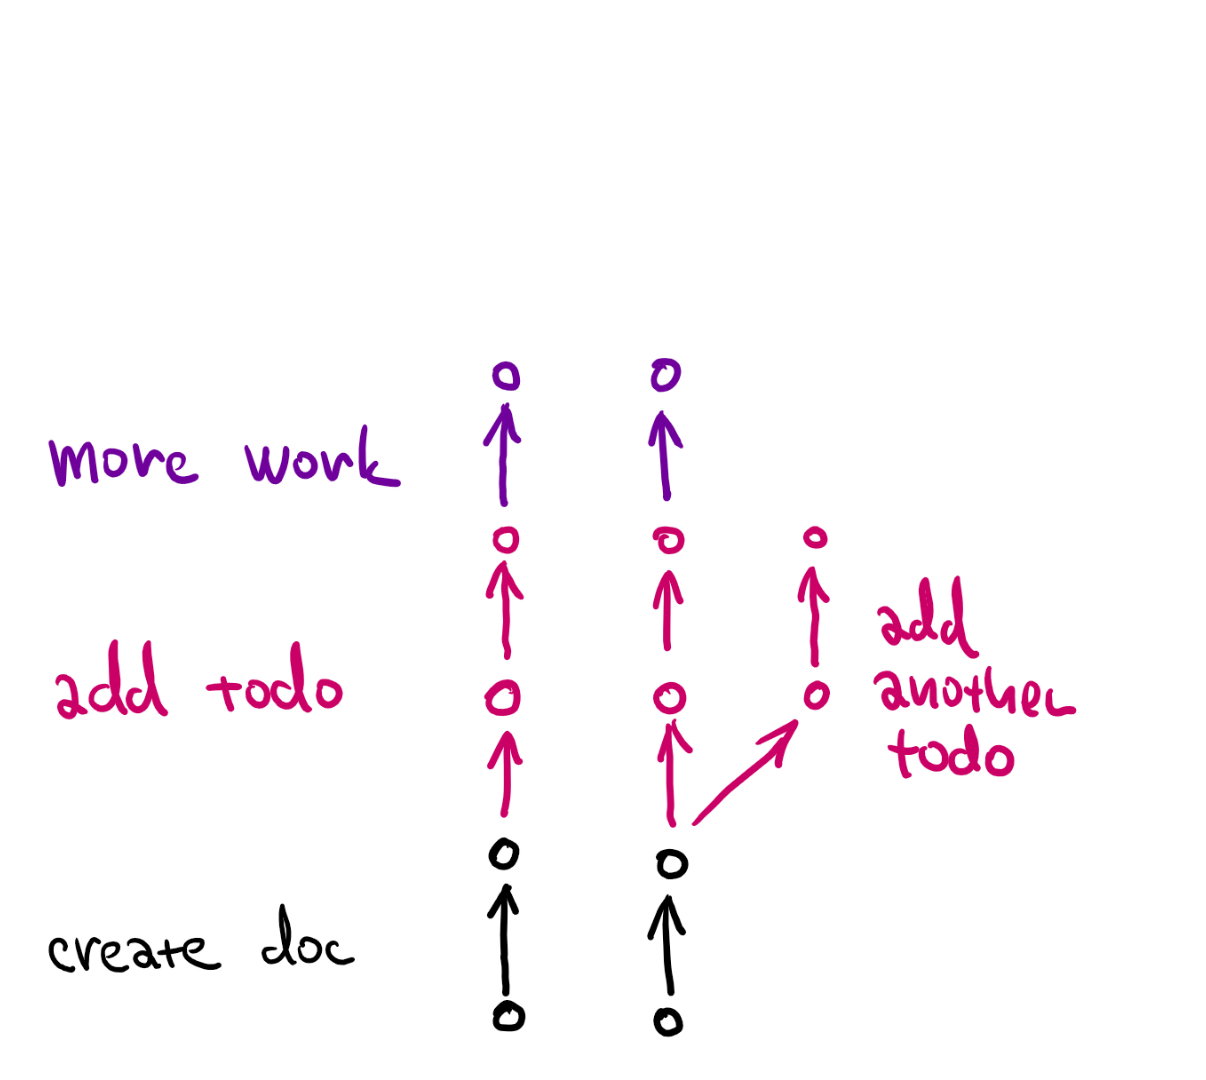 more work
add
another
todo
add todo
create doc